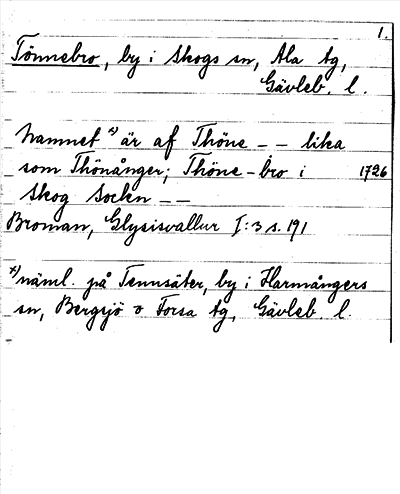 1.
Tönnebro, by i Skogs sn, Ala tg,
Gävleb. l.
Namnet x) är af Thöne – – lika
som Thönånger; Thöne-bro i 1726
Skog Sockn – –
Broman, Glysisvallur I:3 s. 191
x) näml. på Tennsäter, by i Harmångers
sn, Bergsjö o Forsa tg, Gävleb. l.